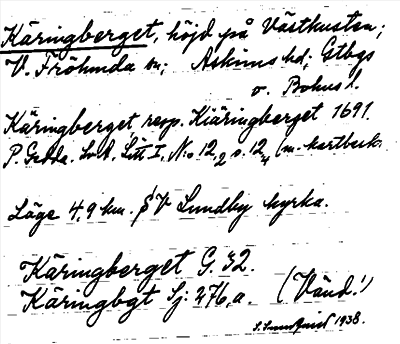 Käringberget, höjd på Västkusten;
V. Frölunda sn; Askims hd; Gtbgs
o. Bohus l.
Käringberget, resp. Kiäringberget 1691.
P. Gedda. L.A. Litt I, N:o 12,2 o. 12,4 (m. kartbeck.
Läge 4,9 km. S V Lundby kyrka.
Käringberget G. 32.
Käringbgt Sj: 276, a. (Vänd!)
S. Lundquist 1938.